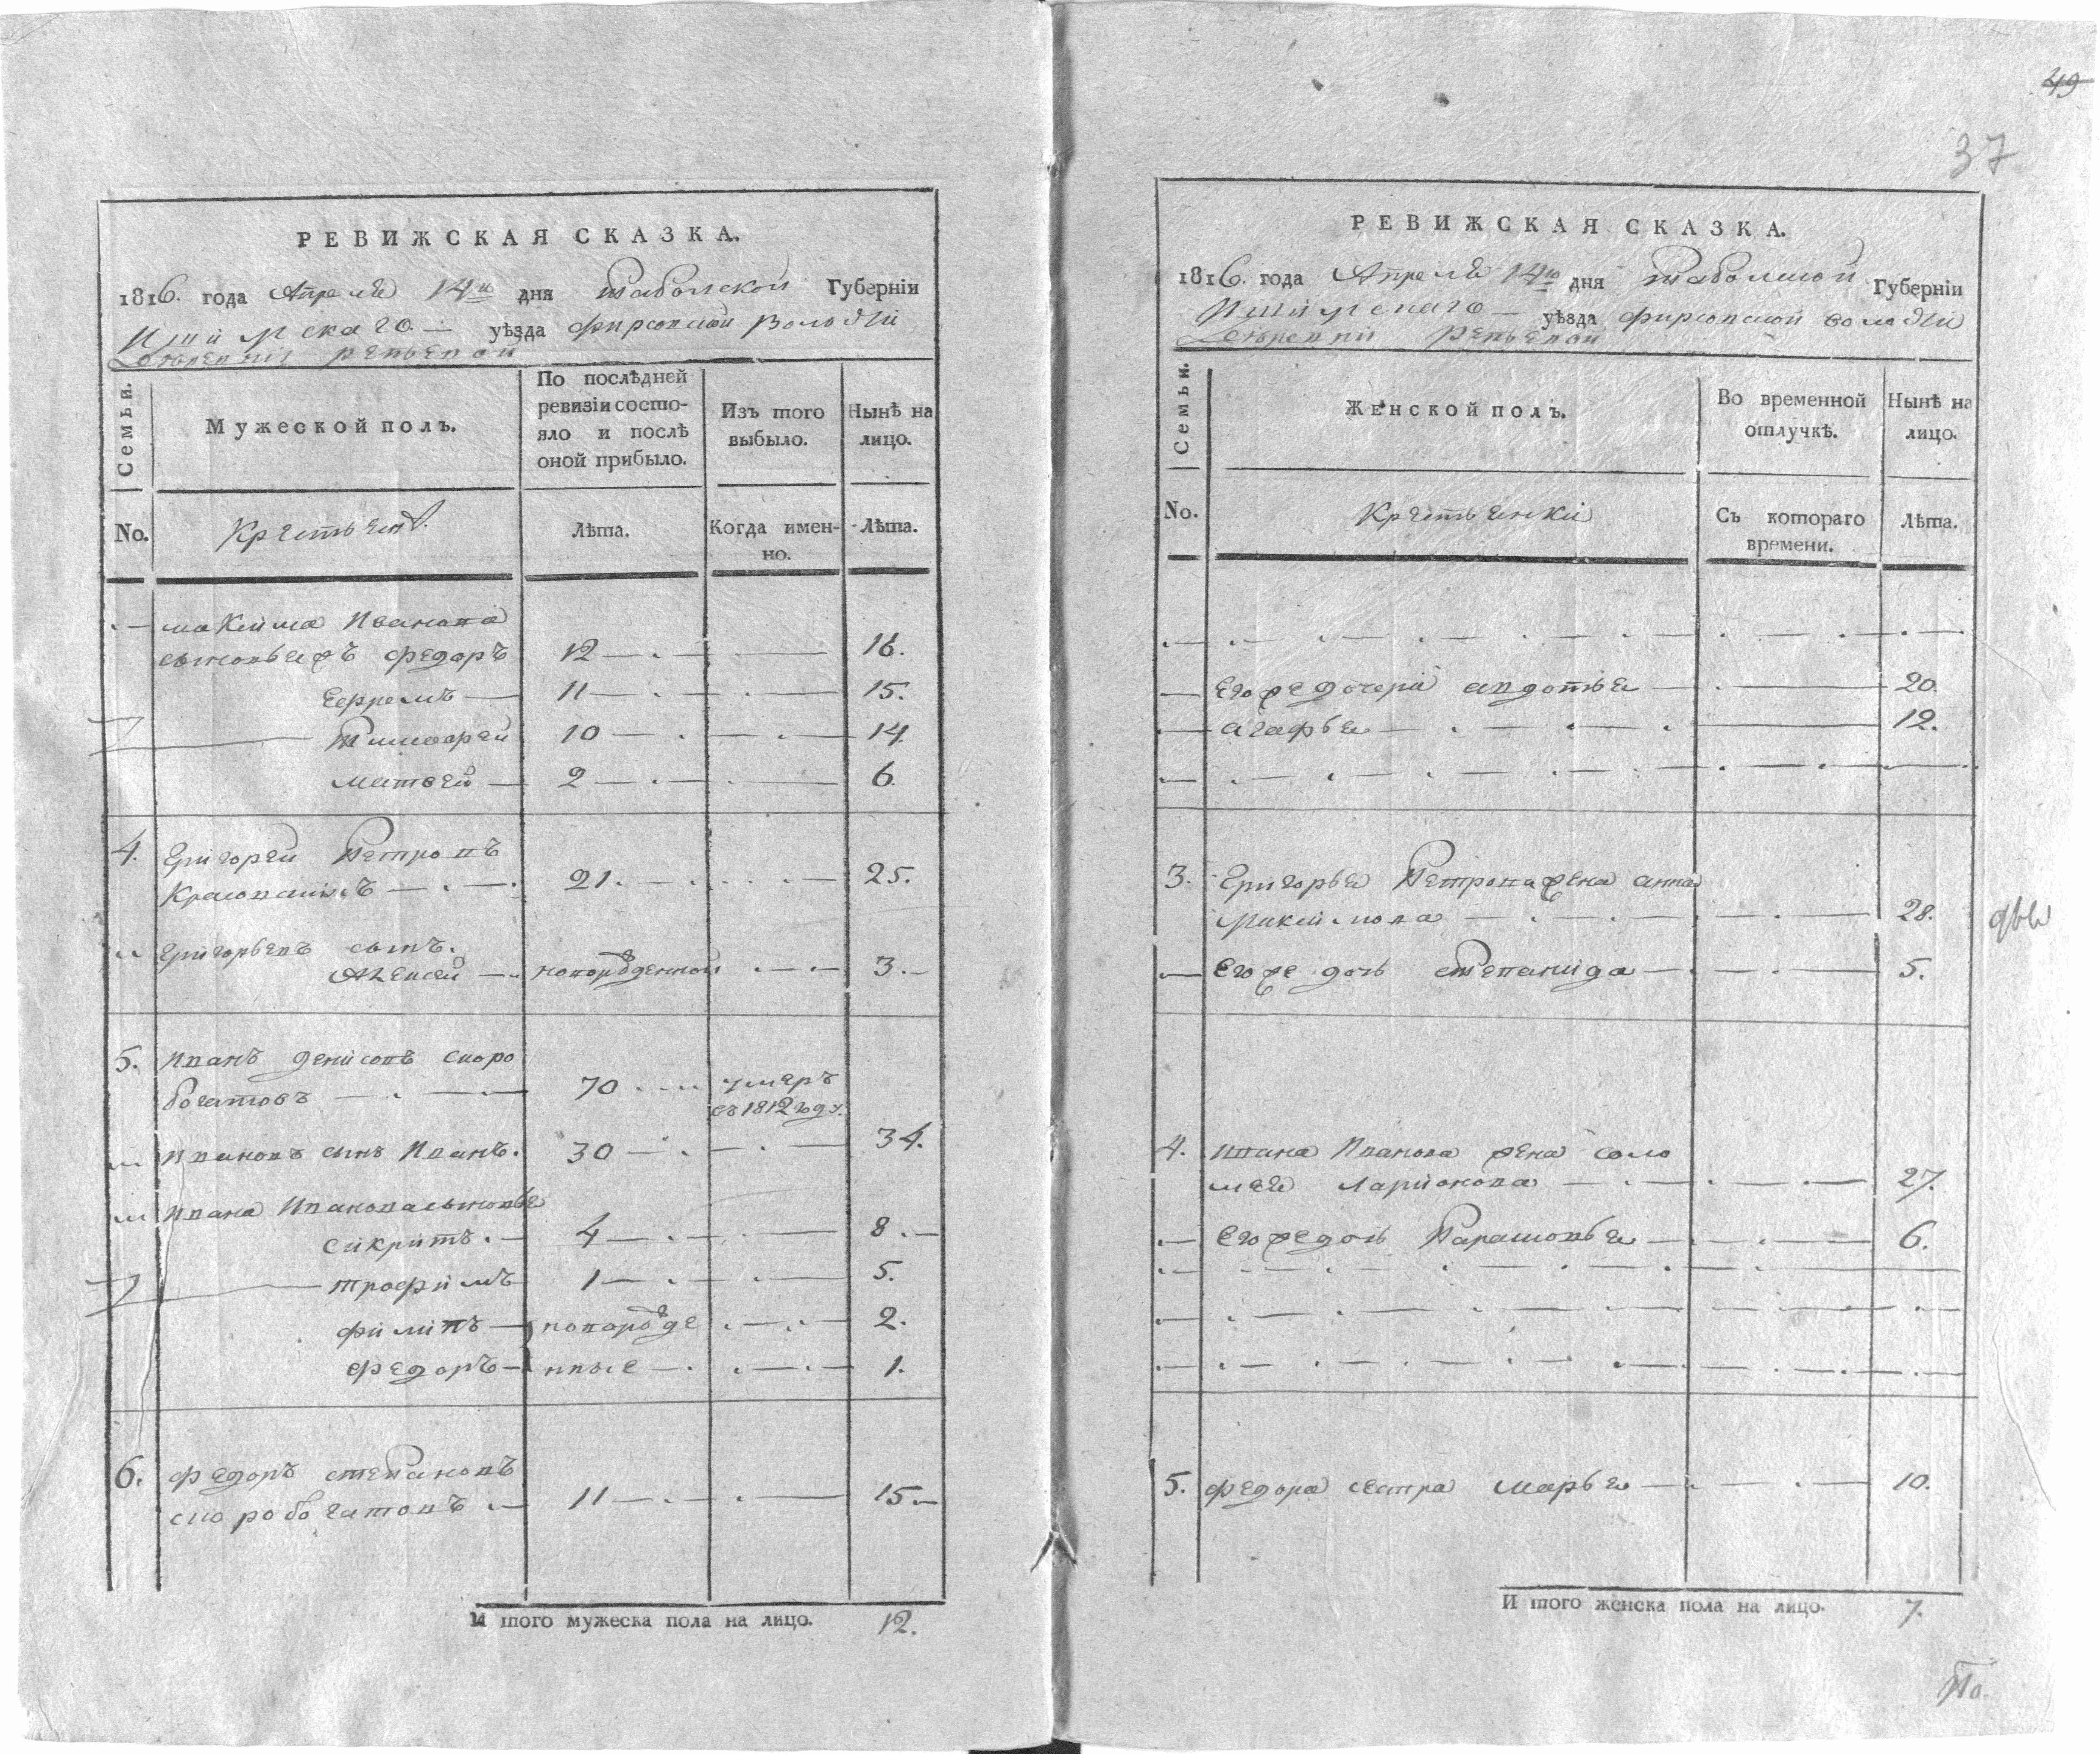 49
37
РЕВИЖСКАЯ СКАЗКА.
1816. года Апреля 14го дня Таболской Губерніи
Ишимскаго уѣзда Фирсовской волости
Деревни Репьевой
Семьи. Мужеской полъ. По послѣдней ревизіи состояло и послѣ оной прибыло. Изъ того выбыло. Нынѣ на лицо.
No. Крестьенъ. Лѣта. Когда именно. Лѣта.
Максима Иванова
сыновьехъ Федоръ 12 16.
Ефремъ 11 15.
Тимофей 10 14
Матвей 2 6
4. Григорей Петровъ
21. 25.
Григорьевъ сынъ.
Алексей новорожденной 3.
5. Иванъ Денисовъ Скоро
богатовъ 70 умеръ
въ 1812 году.
Ивановъ сынъ Иванъ. 30 34.
Ивана Иванова сыновье
4 8.
Трофимъ 1 5.
Филипъ новорожде 2.
Федоръ нные 1.
6. Федоръ Степановъ
Скоробогатовъ 11 15.
И того мужеска пола на лицо. 12.
РЕВИЖСКАЯ СКАЗКА.
1816. года Апреля 14го дня Таболской Губерніи
Ишимскаго уѣзда Фирсовской волости
Деревни Репьевой
Семьи. Женской полъ. Во временной отлучкѣ. Нынѣ на лицо.
No. Крестьенки Съ котораго времени. Лѣта.
Его же дочери Авдотье 20.
Агафье 12.
3. Григорье Петрова жена Анна
Максимова 28.
Его же дочь Степанида 5.
4. Ивана Иванова жена Соло
мея Ларионова 27.
Его же дочь Парасковье 6.
5. Федора сестра Марье 10.
И того женска пола на лицо. 7.